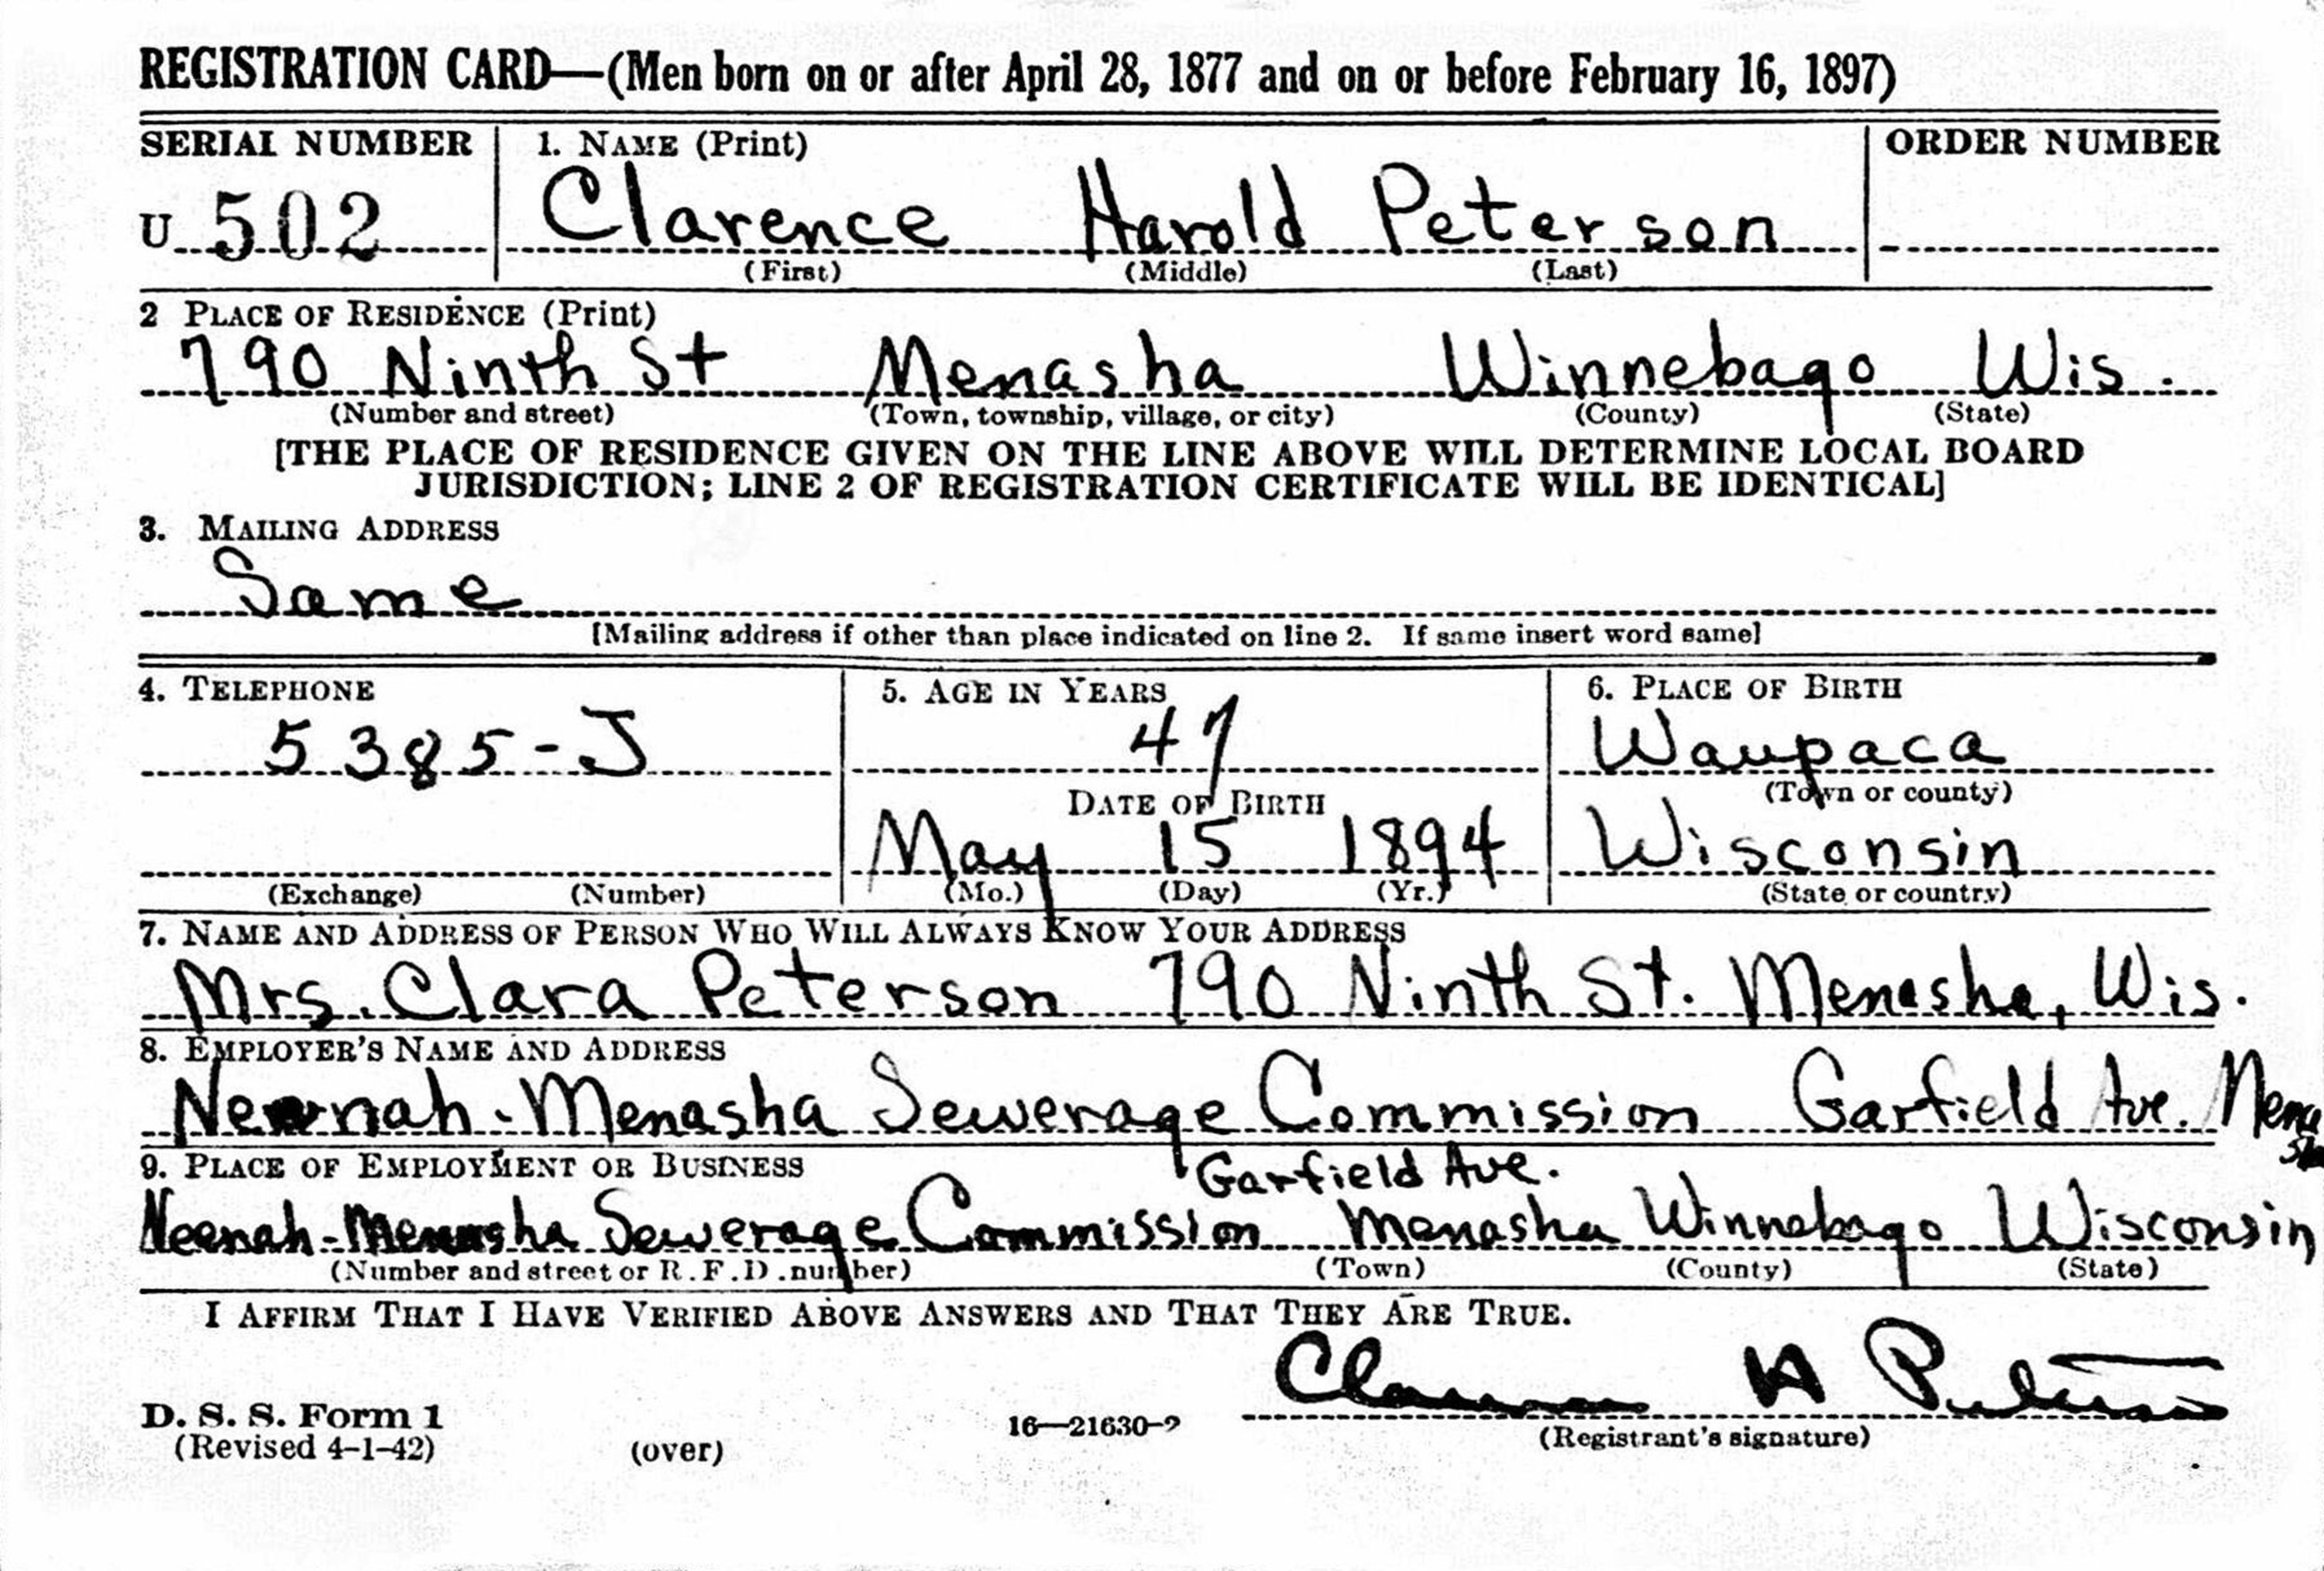 REGISTRATION CARD—(Men born on or after April 28, 1877 and on or before February 16, 1897)
SERIAL NUMBER 1. NAME (Print) ORDER NUMBER
U 502 Clarence Harold Peterson
(First) (Middle) (Last)
2 PLACE OF RESIDENCE (Print)
790 Ninth St Menasha Winnebago Wis.
(Number and street) (Town, township, village, or city) (County) (State)
[THE PLACE OF RESIDENCE GIVEN ON THE LINE ABOVE WILL DETERMINE LOCAL BOARD
JURISDICTION; LINE 2 OF REGISTRATION CERTIFICATE WILL BE IDENTICAL]
3. MAILING ADDRESS
Same
[Mailing address if other than place indicated on line 2. If same insert word same]
4. TELEPHONE 5. AGE IN YEARS 6. PLACE OF BIRTH
5385-J 47 Waupaca
DATE OF BIRTH (Town or county)
May 15 1894 Wisconsin
(Exchange) (Number) (Mo.) (Day) (Yr.) (State or country)
7. NAME AND ADDRESS OF PERSON WHO WILL ALWAYS KNOW YOUR ADDRESS
Mrs. Clara Peterson 790 Ninth St. Menasha, Wis.
8. EMPLOYER'S NAME AND ADDRESS
Neenah-Menasha Sewerage Commission Garfield Ave. Mena
sha
9. PLACE OF EMPLOYMENT OR BUSINESS Garfield Ave.
Neenah-Menasha Sewerage Commission Menasha Winnebago Wisconsin
(Number and street or R.F.D. number) (Town) (County) (State)
I AFFIRM THAT I HAVE VERIFIED ABOVE ANSWERS AND THAT THEY ARE TRUE.
Clarence H Peterson
D. S. S. Form 1 16—21630-2 (Registrant's signature)
(Revised 4-1-42) (over)